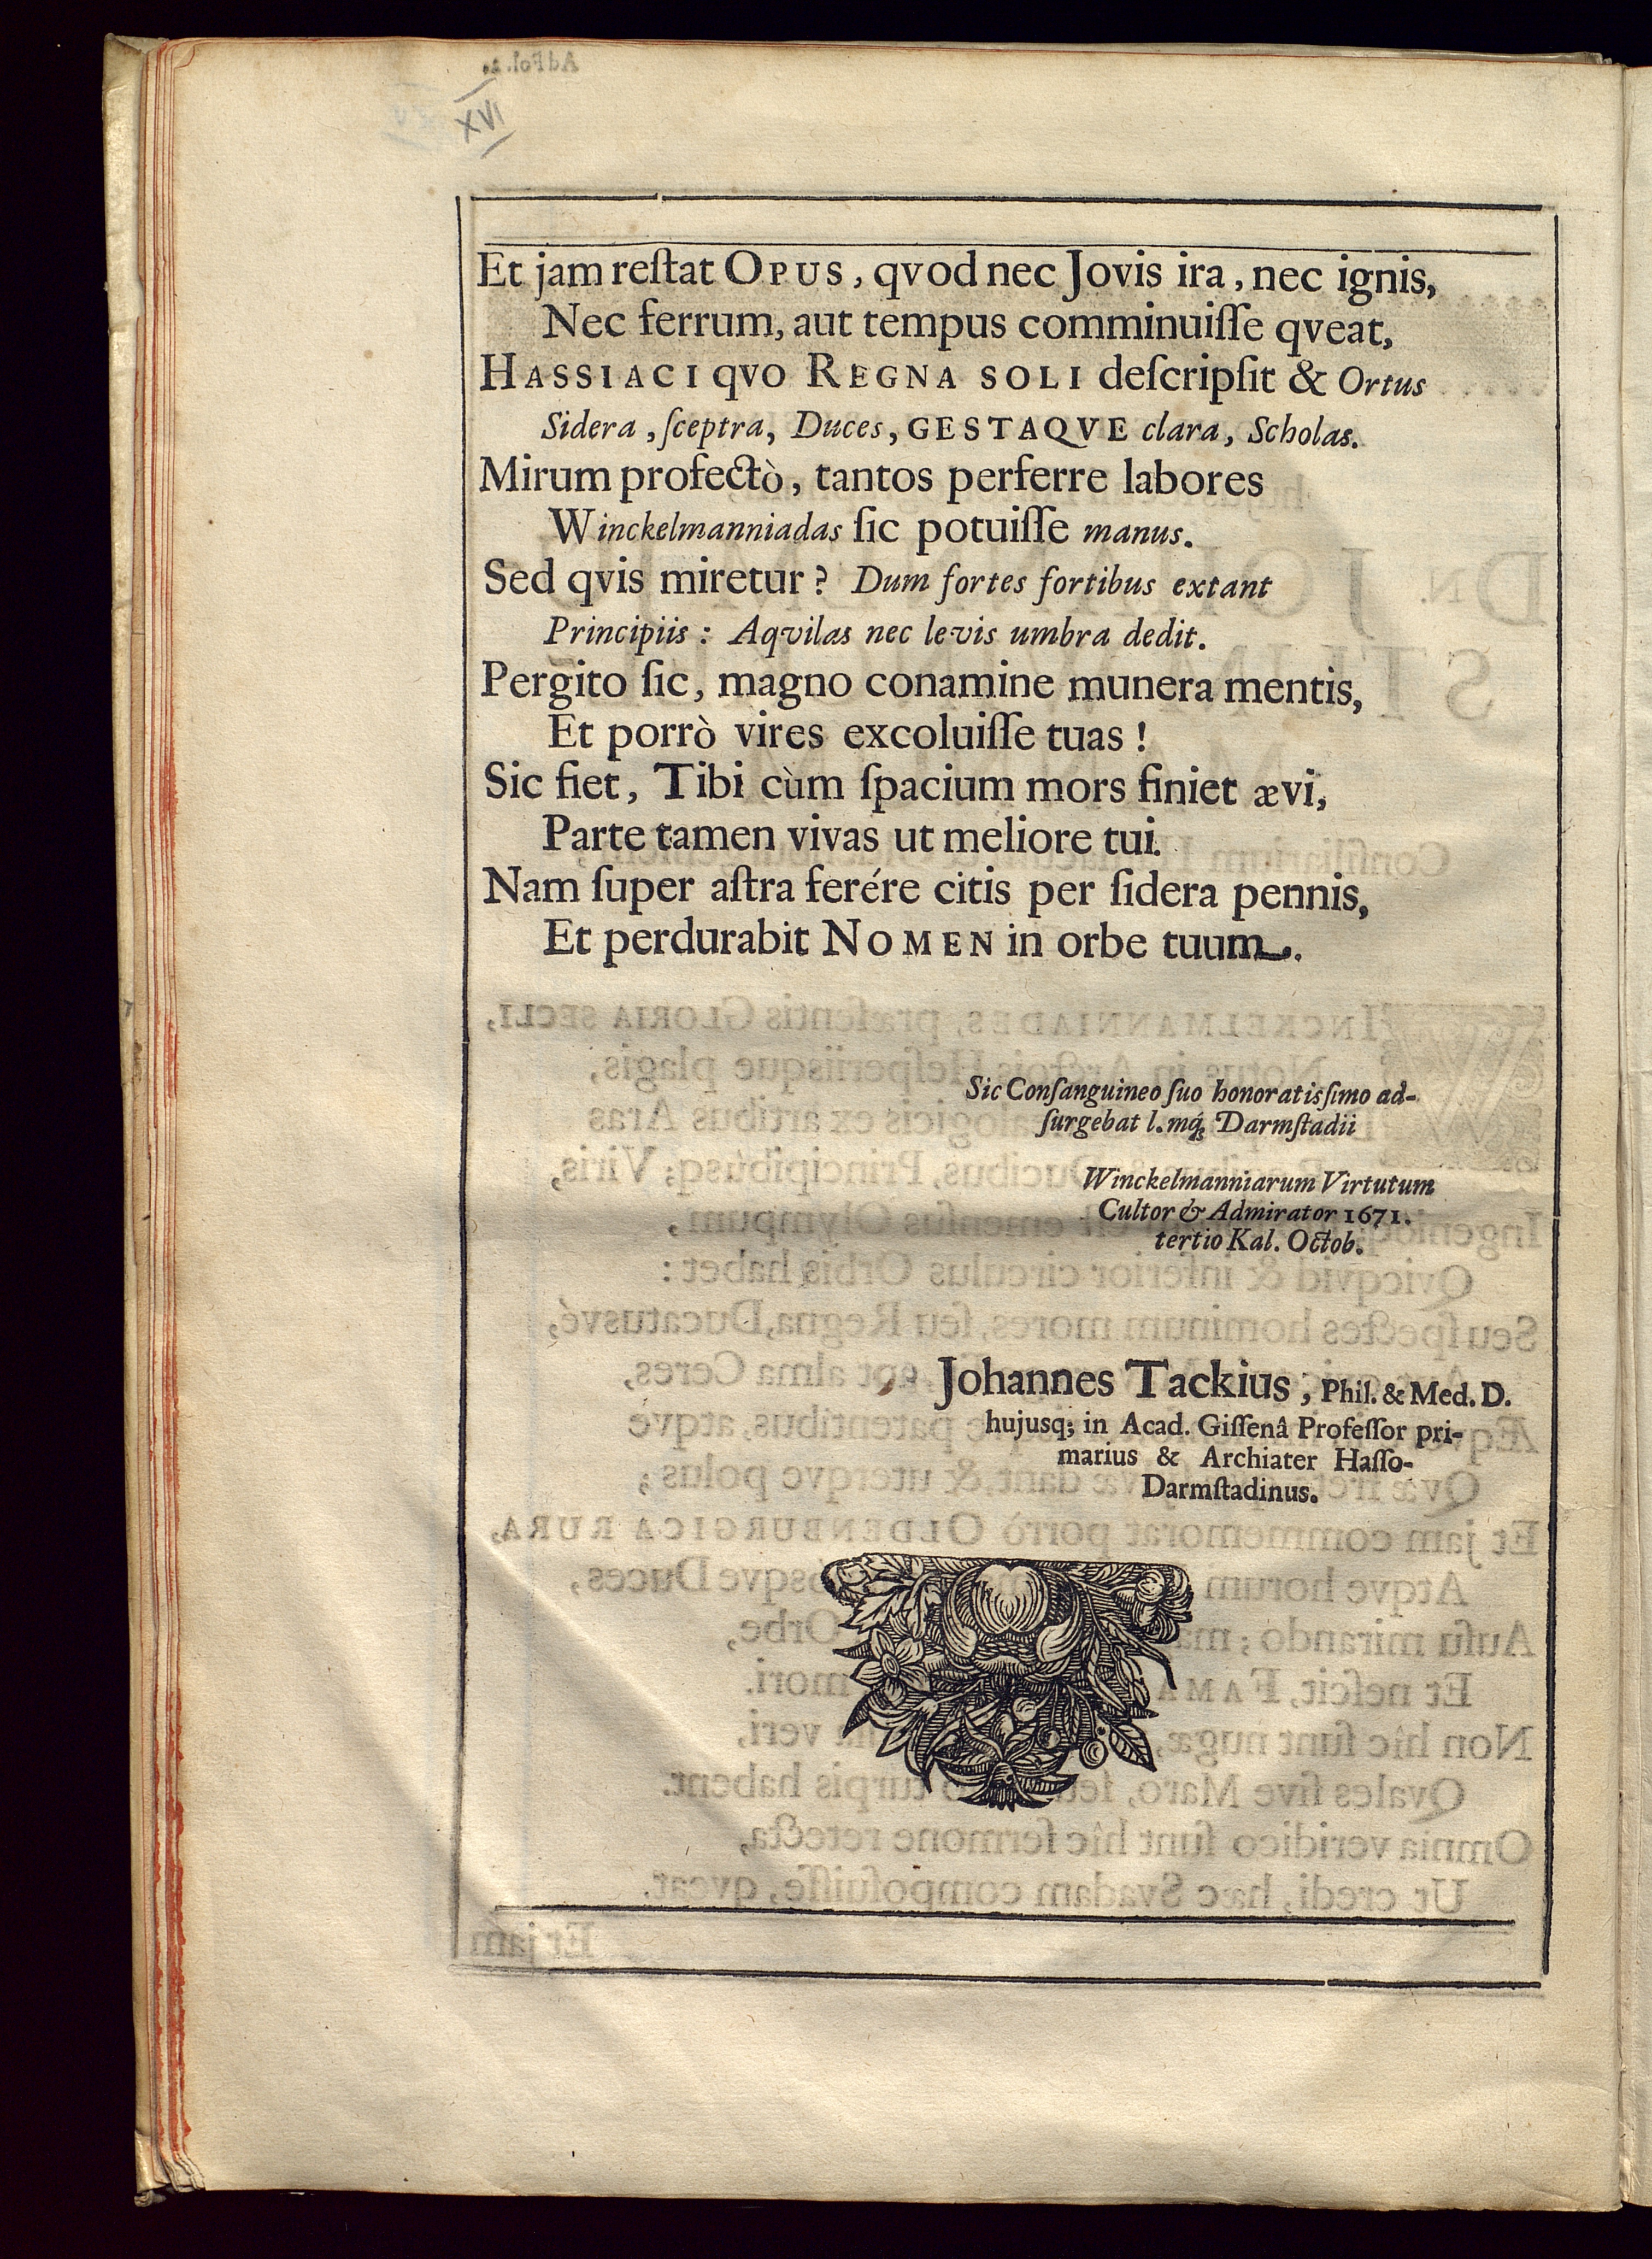 XVI
Et jam reſtat OPUS, qvod nec Jovis ira, nec ignis,
Nec ferrum, aut tempus comminuiſſe qveat,
HASSIACI qvo REGNA SOLI deſcripſit & Ortus
Sidera, ſceptra, Duces, GESTAQVE clara, Scholas.
Mirum profectò, tantos perferre labores
Winckelmanniadas ſic potuiſſe manus.
Sed qvis miretur? Dum fortes fortibus extant
Principiis: Aqvilas nec levis umbra dedit.
Pergito ſic, magno conamine munera mentis,
Et porrò vires excoluiſſe tuas!
Sic fiet, Tibi cùm ſpacium mors finiet ævi,
Parte tamen vivas ut meliore tui.
Nam ſuper aſtra ferére citis per ſidera pennis,
Et perdurabit NOMEN in orbe tuum.
Sic Conſanguineo ſuo honoratisſimo ad-
ſurgebat l. mq́; Darmſtadii
Winckelmanniarum Virtutum
Cultor & Admirator 1671.
tertio Kal. Octob.
Johannes Tackius, Phil. & Med. D.
hujusq; in Acad. Giſſenâ Profeſſor pri-
marius & Archiater Haſſo-
Darmſtadinus.